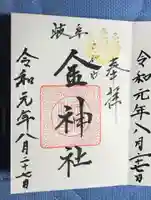 奉拝
岐阜
金神社
令和元年八月二十七日
令和元年八月二十七日